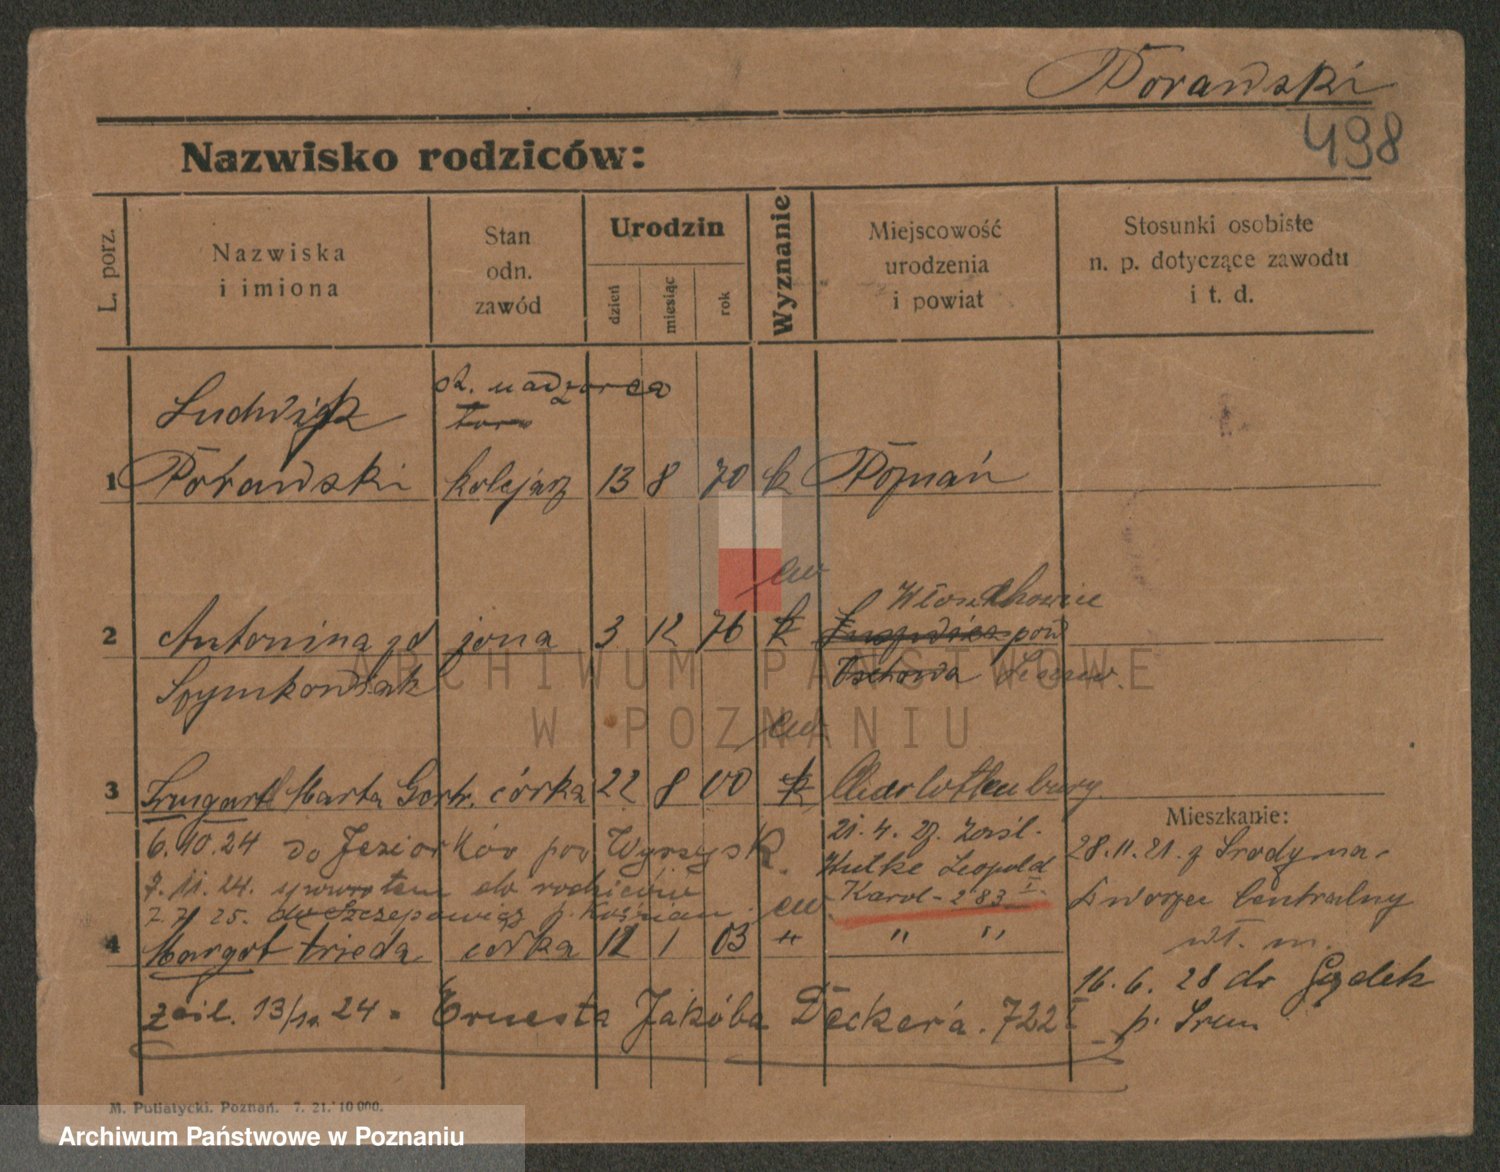 Porawski
498
Nazwisko rodziców:
L. porz.
Nazwiska
i imiona
Stan
odn.
zawód
Urodzin
dzień
miesiąc
rok
Wyznanie
Miejscowość
urodzenia
i powiat
Stosunki osobiste
n. p. dotyczące zawodu
i t. d.
Ludwik st. nadzorca
toro
1 Porawski kolejarz 13 8 70 k Poznań
ew Włoszakowice
2 Antonina zd żona 3 12 76 k pow
Szymkowiak Wschowa
ew
3 Irmgart Marta Gertr. córka 22 8 00 k Charlottenburg
Mieszkanie:
6.10.24 do Jeziorków pow Wyrzysk
21. 4. 27. zaśl.
Hulke Leopold
Karol - 283 I
7.11.24. z powrotem do rodziców
7.7.25. do Szczepowice p. Kościan
ew
4 Margot Frieda córka 12 1 03 " " "
28.11.21. z Środy na
Dworzec Centralny
wł. m.
16. 6. 28 do Gądek
p. Śrem
zaśl. 13/10 24 - Ernesta Jakóba Deckera. 722 I
M. Putiatycki. Poznań. 7. 21. 10 000.
ARCHIWUM PAŃSTWOWE
W POZNANIU
Archiwum Państwowe w Poznaniu